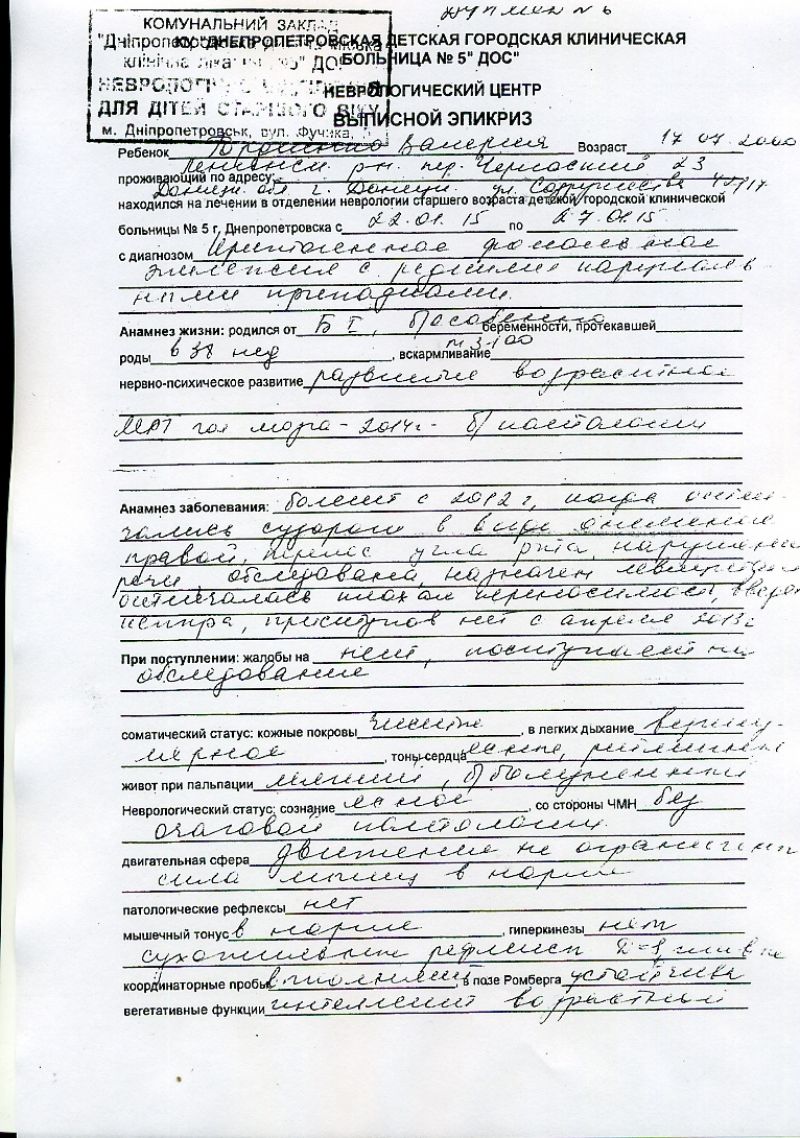 КОМУНАЛЬНИЙ ЗАКЛАД
КУ "ДНЕПРОПЕТРОВСКАЯ ДЕТСКАЯ ГОРОДСКАЯ КЛИНИЧЕСКАЯ
БОЛЬНИЦА № 5" ДОС"
НЕВРОЛОГИЧЕСКИЙ ЦЕНТР
ДЛЯ ДІТЕЙ СТАРШОГО ВІКУ
ВЫПИСНОЙ ЭПИКРИЗ
м. Дніпропетровськ, вул. Фучика,
Ребенок Валерия Возраст 17.07.2000
пер. 23
проживающий по адресу:
Донецк. обл г. Донецк ул.
находился на лечении в отделении неврологии старшего возраста детской городской клинической
больницы № 5 г, Днепропетровска с 22.01.15 по 27.01.15
с диагнозом Криптогенная фокальная
эпилепсия с редкими парциаль
ными припадками.
Анамнез жизни: родился от Б I, б/особенно беременности, протекавшей
роды в 38 нед, вскармливание m 3100
нервно-психическое развитие развитие возрастное
МРТ гол мозга - 2014г - б/патологии
Анамнез заболевания: болеет с 2012 г, когда отме-
чались судороги в виде онемения
правой, перекос угла рта, нарушения
речи, обследована, назначен
отмечалась плохая переносимость,
приступов нет с апреля 2013г
При поступлении: жалобы на нет, поступает на
обследование
соматический статус: кожные покровы чистые, в легких дыхание везику-
лярное, тоны сердца ясные, ритмичные
живот при пальпации мягкий, б/болезненный
Неврологический статус: сознание ясное, со стороны ЧМН без
очаговой патологии
двигательная сфера движения не ограничены
сила мышц в норме
патологические рефлексы нет
мышечный тонус в норме, гиперкинезы нет
сухожильные рефлексы D=S, живые
координаторные пробы выполняет, в позе Ромберга устойчива
вегетативные функции интеллект возрастной